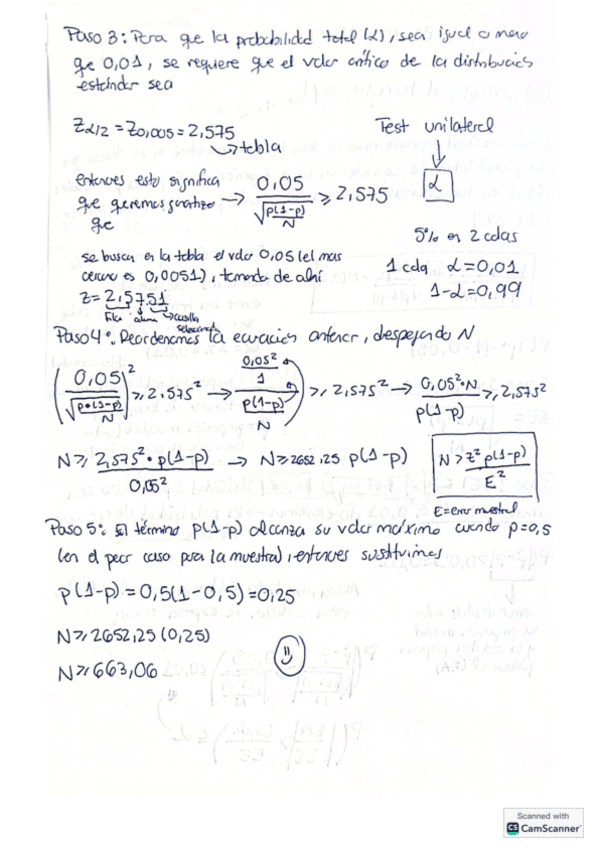 Paso 3: Para que la probabilidad total (α), sea igual o menor
que 0,01, se requiere que el valor crítico de la distribución
estándar sea
Zα/2 = Z0,005 = 2,575
↳ tabla
Test unilateral
↓
α
entonces esto significa
que queremos →
que
0,05 / √(p(1-p)/N) ≥ 2,575
5% en 2 colas
1 cola α = 0,01
1-α = 0,99
se busca en la tabla el valor 0,05 (el mas
cercano es 0,0051), tomando de ahí
Z = 2,5751
Fila casilla
seleccionada
Paso 4: Reordenamos la ecuación anterior, despejando N
(0,05 / √(p·(1-p)/N))² ≥ 2,575² → ((0,05²/1) / (p(1-p)/N)) ≥ 2,575² → 0,05²·N / p(1-p) ≥ 2,575²
N ≥ 2,575² · p(1-p) / 0,05² → N ≥ 2652,25 p(1-p)
N > z² p(1-p) / E²
E = error muestral
Paso 5: El término p(1-p) alcanza su valor máximo cuando p=0,5
(en el peor caso para la muestra), entonces sustituimos
p(1-p) = 0,5(1-0,5) = 0,25
N ≥ 2652,25 (0,25)
N ≥ 663,06
Scanned with
CS CamScanner